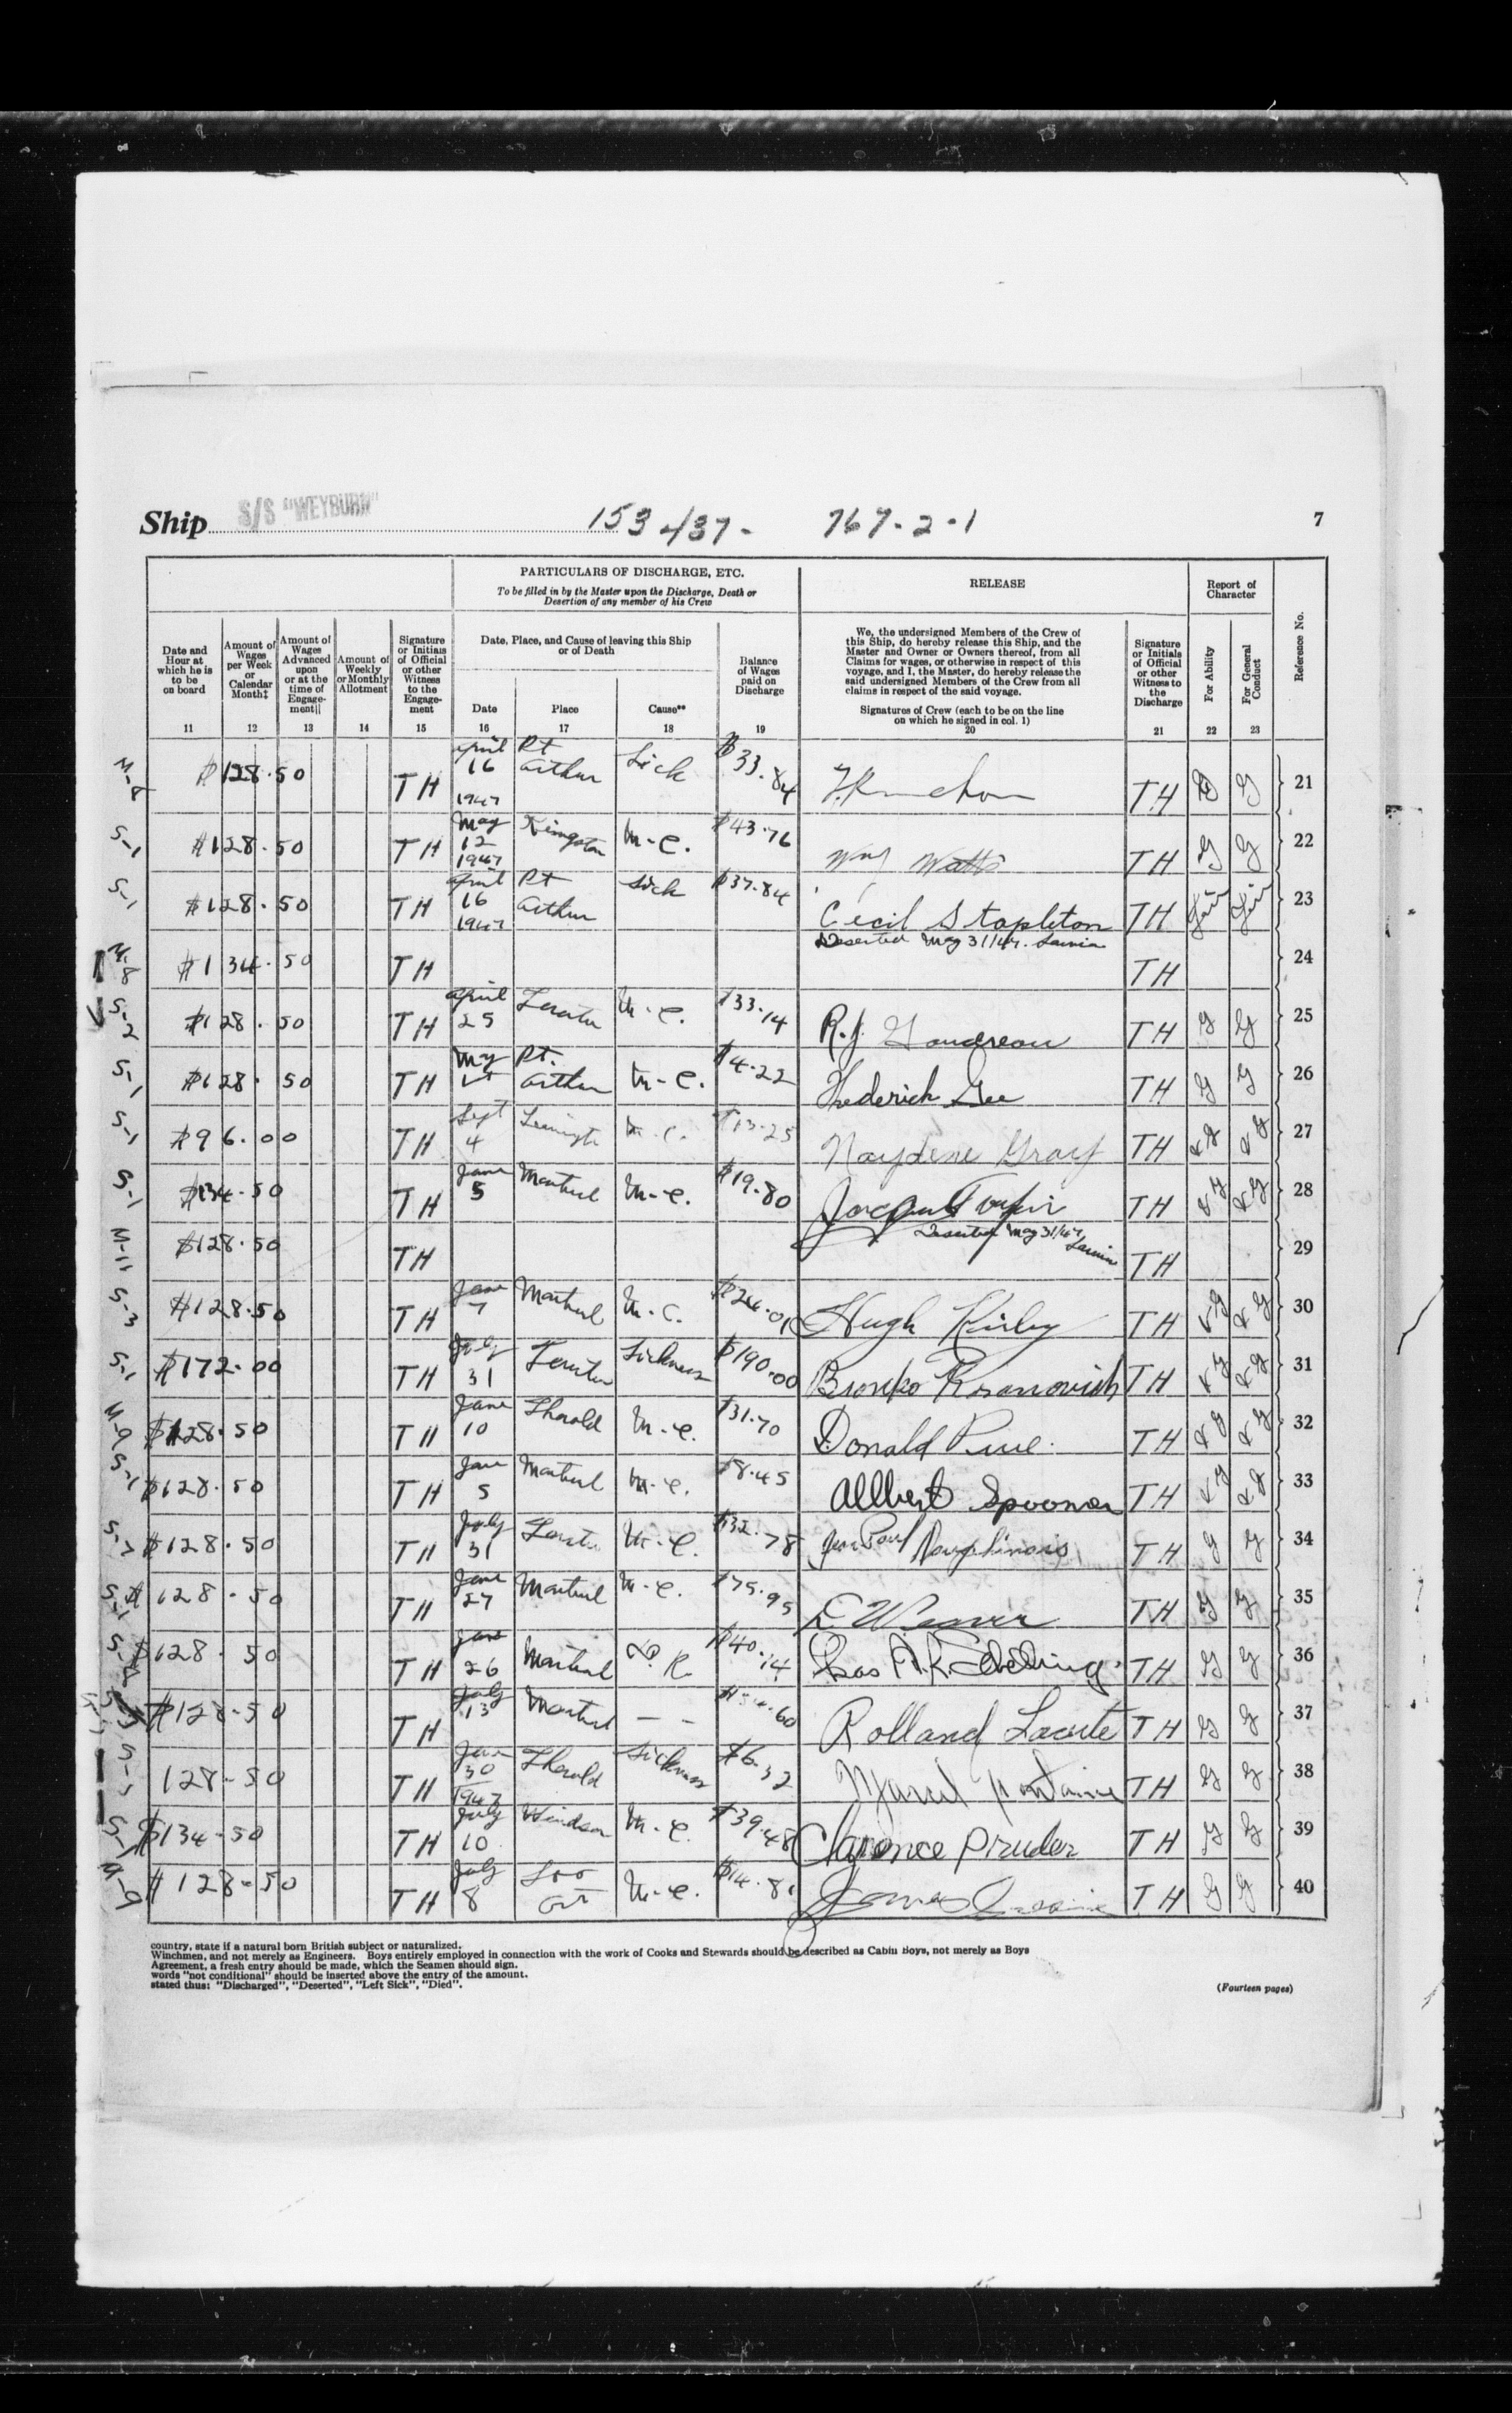 Ship S/S "WEYBURN" 153437- 767-2-1 7
PARTICULARS OF DISCHARGE, ETC.
To be filled in by the Master upon the Discharge, Death or
Desertion of any member of his Crew
RELEASE
Report of
Character
Date and
Hour at
which he is
to be
on board
Amount of
Wages
per Week
or
Calendar
Month‡
Amount of
Wages
Advanced
upon
or at the
time of
Engage-
ment||
Amount of
Weekly
or Monthly
Allotment
Signature
or Initials
of Official
or other
Witness
to the
Engage-
ment
Date, Place, and Cause of leaving this Ship
or of Death
Date
Place
Cause**
Balance
of Wages
paid on
Discharge
We, the undersigned Members of the Crew of
this Ship, do hereby release this Ship, and the
Master and Owner or Owners thereof, from all
Claims for wages, or otherwise in respect of this
voyage, and I, the Master, do hereby release the
said undersigned Members of the Crew from all
claims in respect of the said voyage.
Signatures of Crew (each to be on the line
on which he signed in col. 1)
Signature
or Initials
of Official
or other
Witness to
the
Discharge
For Ability
For General
Conduct
Reference No.
11 12 13 14 15 16 17 18 19 20 21 22 23
M-8 $128.50 TH April 16 1947 Pt Arthur Sick $33.84 TH G G 21
S-1 $128.50 TH May 12 1947 Kingston M-C. $43.76 Wm Watts TH G G 22
S-1 $128.50 TH April 16 1947 Pt Arthur Sick $37.84 Cecil Stapleton TH Fair Fair 23
M-8 $134.50 TH Deserted May 31/47. Sarnia TH 24
S-2 $128.50 TH April 25 M-C. $33.14 R.J. Gaudreau TH G G 25
S-1 $128.50 TH May Pt. Arthur M-C. $4.22 Frederick Gee TH G G 26
S-1 $96.00 TH Sept 4 M.C. $13.25 Naydene Gray TH VG VG 27
S-1 $134.50 TH June 5 Montreal M-C. $19.80 TH VG VG 28
M-11 $128.50 TH Deserted May 31/47, Sarnia TH 29
S-3 $128.50 TH June 7 Montreal M.C. $24.01 Hugh Kirby TH VG VG 30
S-1 $172.00 TH July 31 Sickness $190.00 Bronko TH VG VG 31
M-9 $128.50 TH June 10 Thorold M-C. $31.70 Donald TH VG VG 32
S-1 $128.50 TH June 5 Montreal M-C. $8.45 Allbert Spooner TH VG VG 33
$128.50 TH July 31 M-C. $32.78 Jean Paul TH G G 34
S-1 $128.50 TH June 27 Montreal M-C. $75.95 Weaver TH G G 35
$128.50 TH June 26 Montreal $40.14 Chas TH G G 36
$128.50 TH July 13 Montreal — — .60 Rolland Lacoste TH G G 37
128-50 TH June 30 1947 Thorold Sickness $6.32 Marcel Fontaine TH G G 38
S-1 $134-50 TH July 10 Windsor M-C. $39.48 Clarence Pruder TH G G 39
M-9 $128-50 TH July 8 Soo Ont M-C. $14.81 James TH G G 40
country, state if a natural born British subject or naturalized.
Winchmen, and not merely as Engineers. Boys entirely employed in connection with the work of Cooks and Stewards should be described as Cabin Boys, not merely as Boys
Agreement, a fresh entry should be made, which the Seamen should sign.
words "not conditional" should be inserted above the entry of the amount.
stated thus: "Discharged", "Deserted", "Left Sick", "Died".
(Fourteen pages)